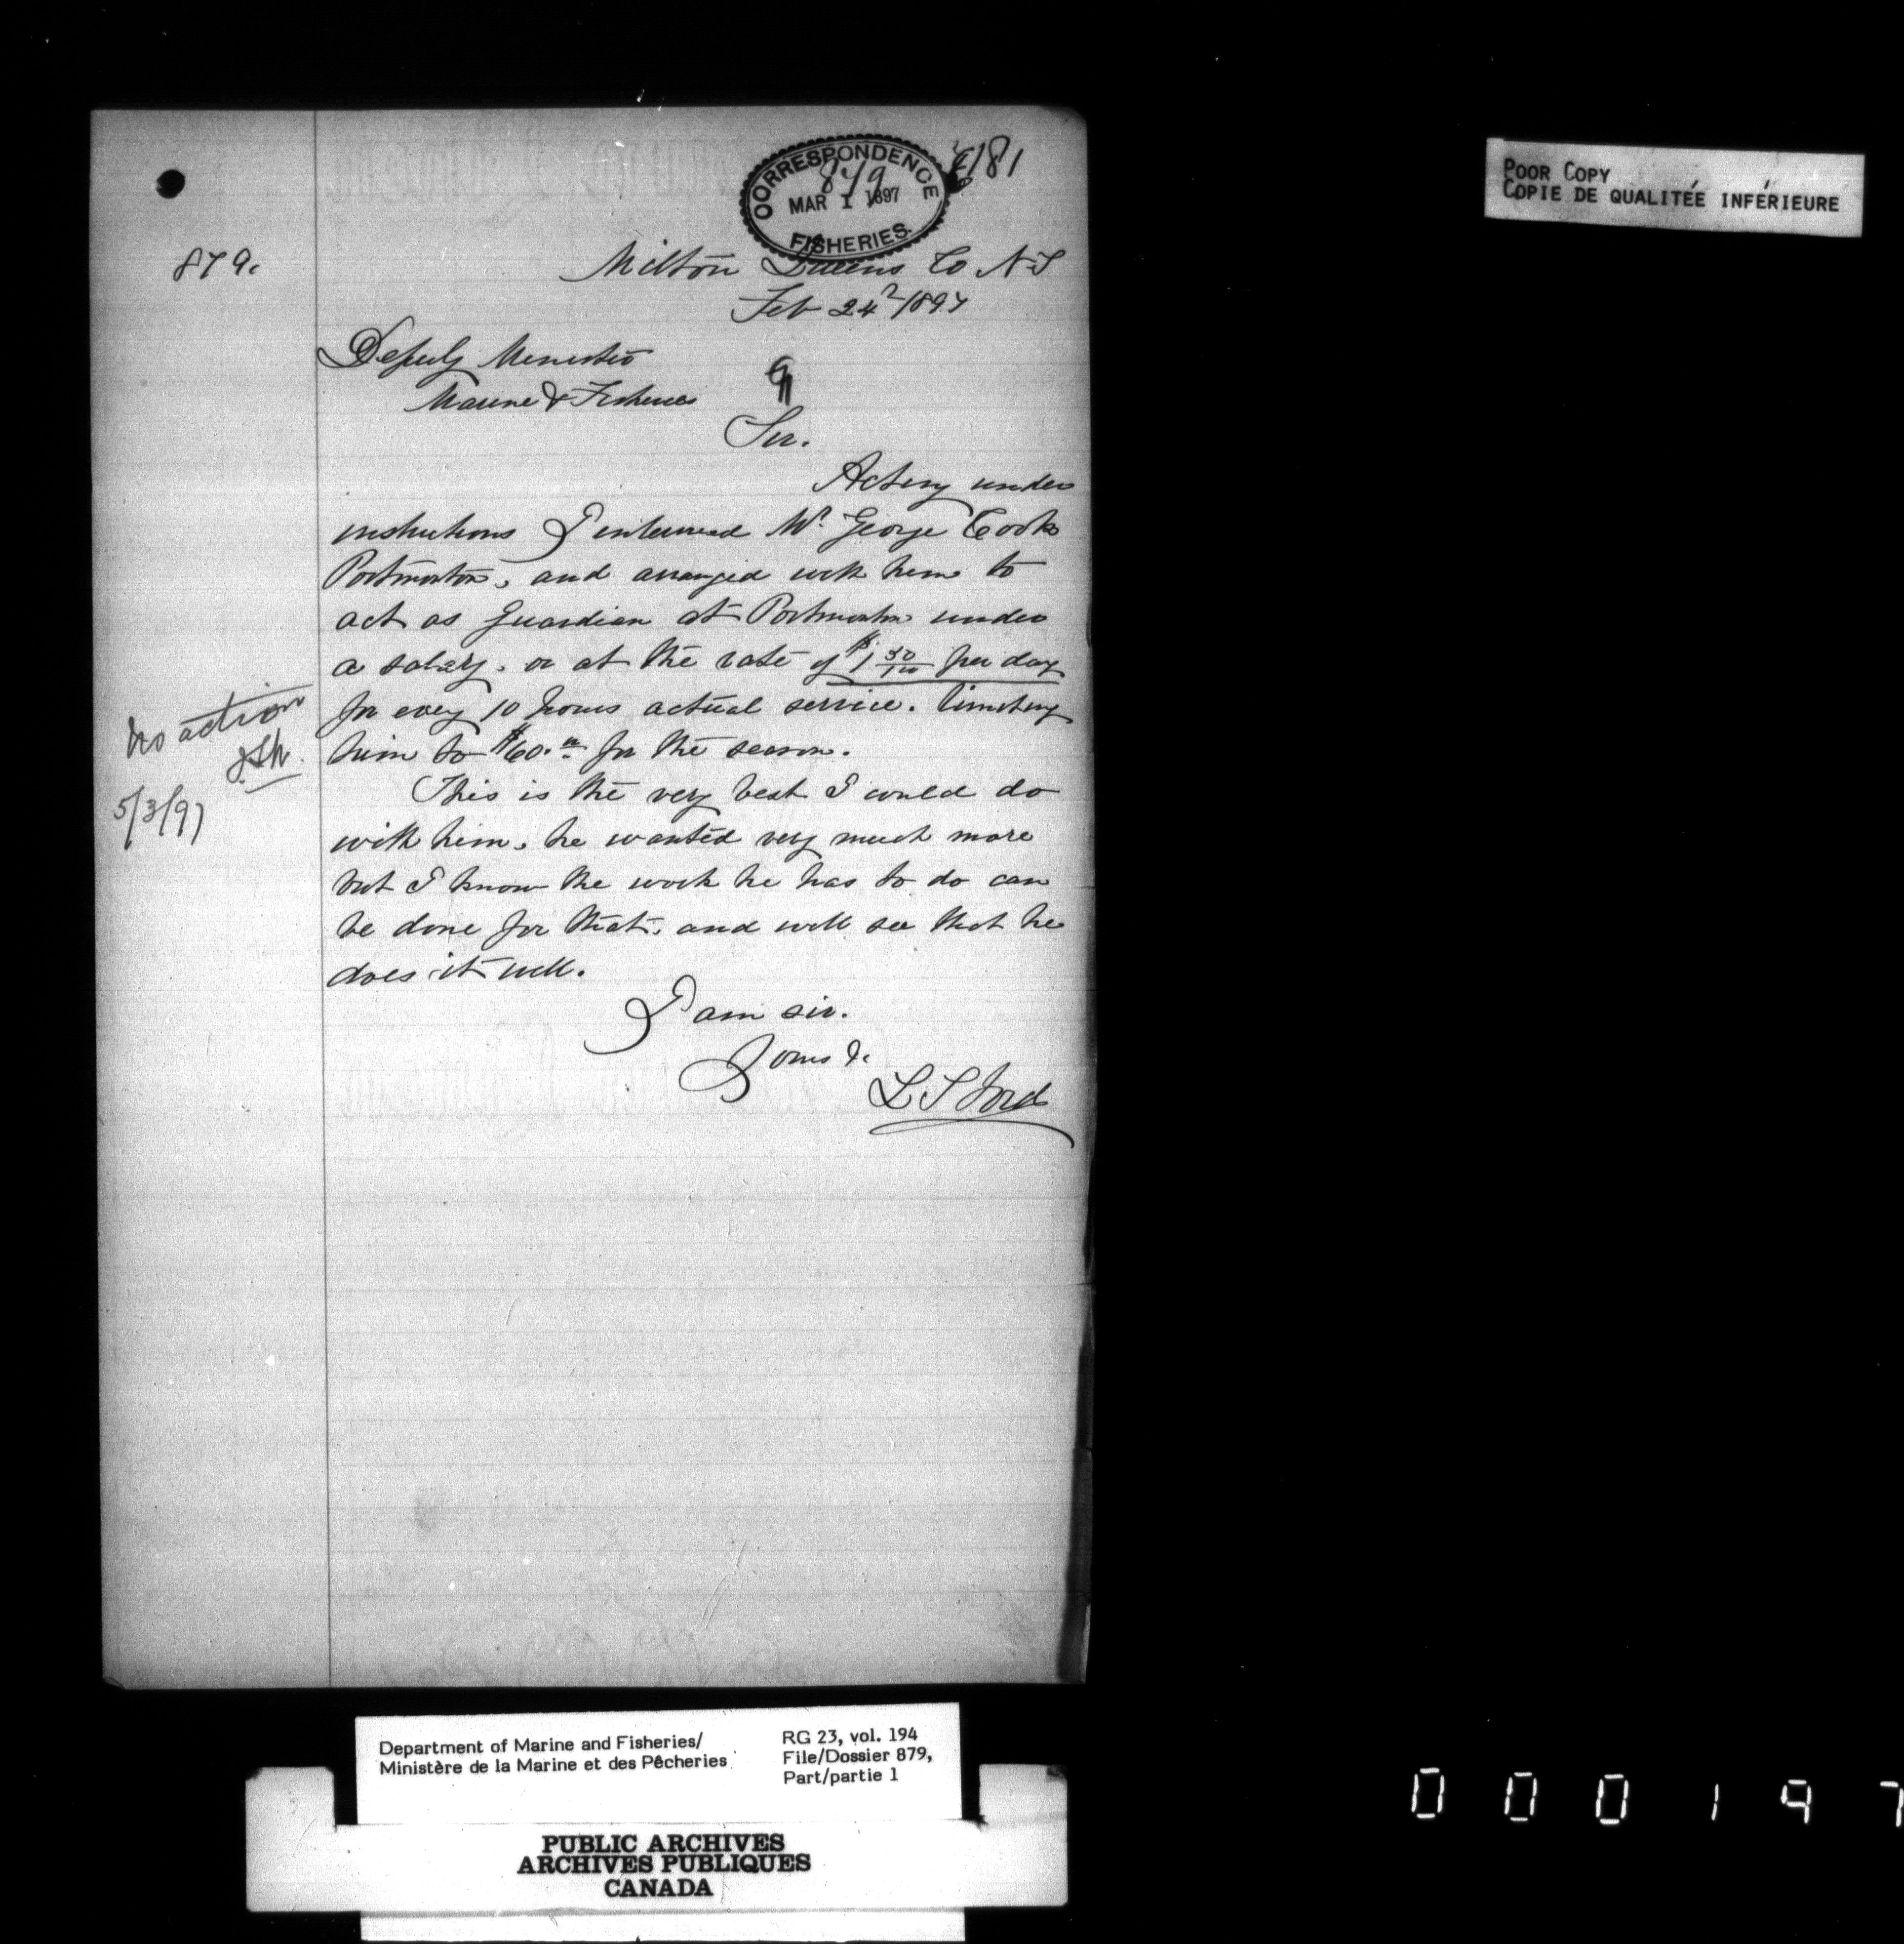 CORRESPONDENCE
879
MAR 1 1897
FISHERIES.
181
879.
Milton Queens Co N.S
Feb 24 1897
Deputy Minister
Marine & Fisheries
Sir.
Acting under
instructions I interviewed Mr. George Cook
Portmorton, and arranged with him to
act as Guardian at Portmorton under
a salary. or at the rate of $1 50/100 per day
for every 10 hours actual service. limiting
him to $60.00 for the season.
No action
5/3/97
This is the very best I could do
with him. he wanted very much more
but I know the work he has to do can
be done for that. and will see that he
does it well.
I am sir.
Yours &c
L S Ford
POOR COPY
COPIE DE QUALITÉE INFÉRIEURE
Department of Marine and Fisheries/
Ministère de la Marine et des Pêcheries
RG 23, vol. 194
File/Dossier 879,
Part/partie 1
PUBLIC ARCHIVES
ARCHIVES PUBLIQUES
CANADA
000197